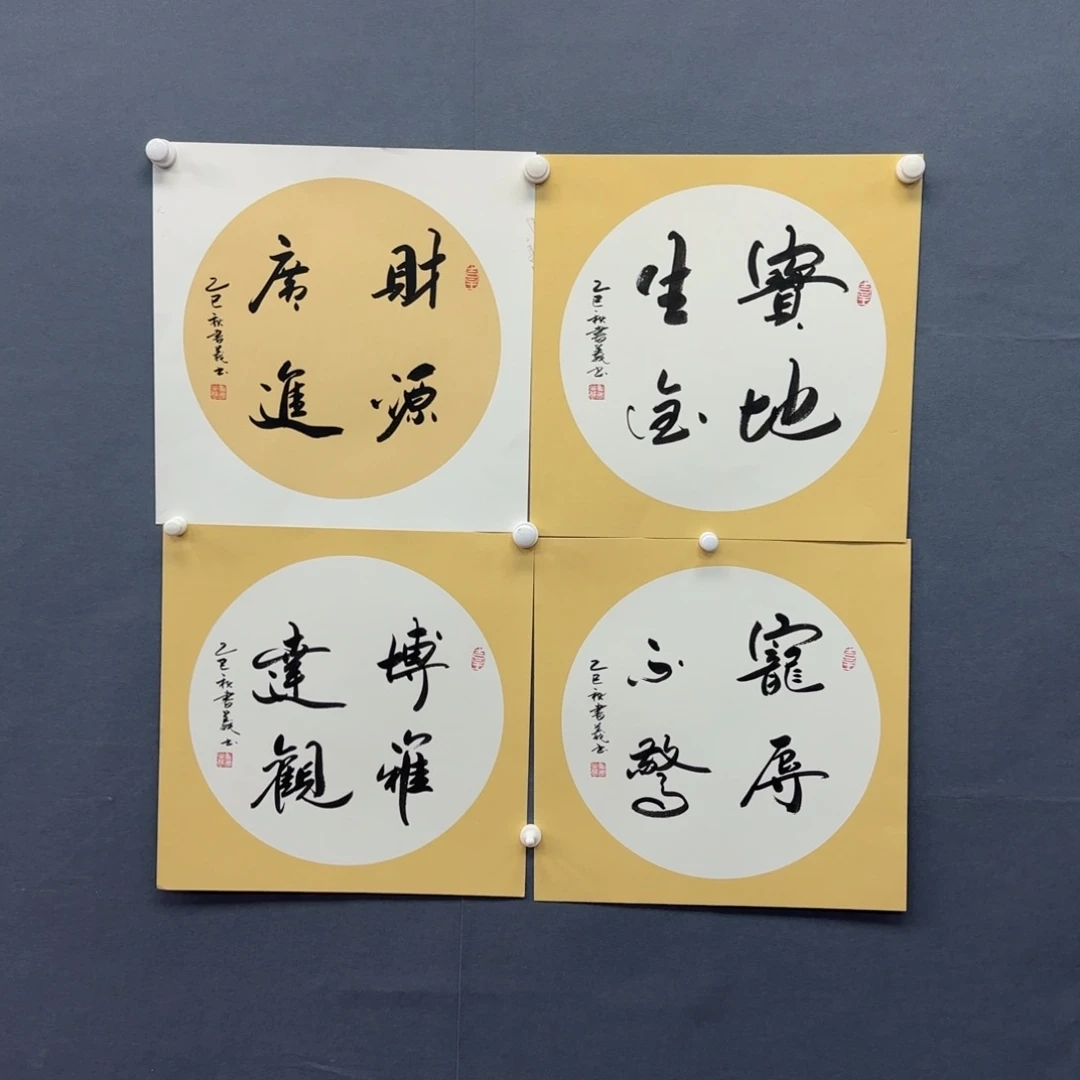 財源
廣進
乙巳秋書義書
寶地
生金
乙巳秋書義书
博雅
達觀
乙巳秋書義书
寵辱
不驚
乙巳秋書義书